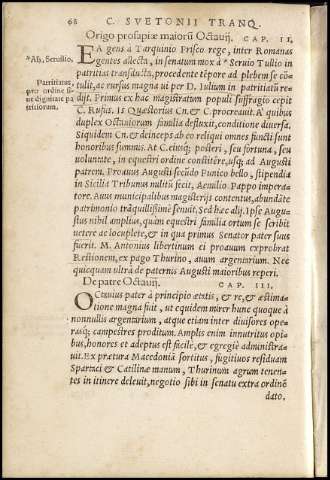 68 C. SVETONII TRANQ.
Origo prosapiæ maiorũ Octauij. CAP. II.
EA gens à Tarquinio Prisco rege, inter Romanas
*Als, Seruilio.
gentes allecta, in senatum mox à *Seruio Tullio in
patritias transducta, procedente tẽpore ad plebem se cõ
Patritiatus,
pro ordine si
ue dignitate pa
tritiorum.
tulit, ac rursus magna ui per D. Iulium in patritiatũ re
dijt. Primus ex hac magistratum populi suffragio cepit
C. Rufus. Is Quæstorius Cn. & C. procreauit. A' quibus
duplex Octauiorum familia defluxit, conditione diuersa.
Siquidem Cn. & deinceps ab eo reliqui omnes functi sunt
honoribus summis. At C. eiusq; posteri, seu fortuna, seu
uoluntate, in equestri ordine constitêre, usq; ad Augusti
patrem. Proauus Augusti secũdo Punico bello, stipendia
in Sicilia Tribunus militũ fecit, Aemilio Pappo impera
tore. Auus municipalibus magisterijs contentus, abundãte
patrimonio trãquillißimè senuit. Sed hæc alij. Ipse Augu
stus nihil amplius, quàm equestri familia ortum se scribit
uetere ac locuplete, & in qua primus Senator pater suus
fuerit. M. Antonius libertinum ei proauum exprobrat
Restionem, ex pago Thurino, auum argentarium. Nec
quicquam ultrà de paternis Augusti maioribus reperi.
De patre Octauij. CAP. III.
OCtauius pater à principio ætatis, & re, & æstima
tione magna fuit, ut equidem mirer hunc quoque à
nonnullis argentarium, atque etiam inter diuisores ope
rasq; campestres proditum. Amplis enim innutritus opi
bus, honores et adeptus est facilè, & egregiè administra
uit. Ex prætura Macedoniã sortitus, fugitiuos residuam
Spartaci & Catilinæ manum, Thurinum agrum tenen
tes in itinere deleuit, negotio sibi in senatu extra ordinẽ
dato,